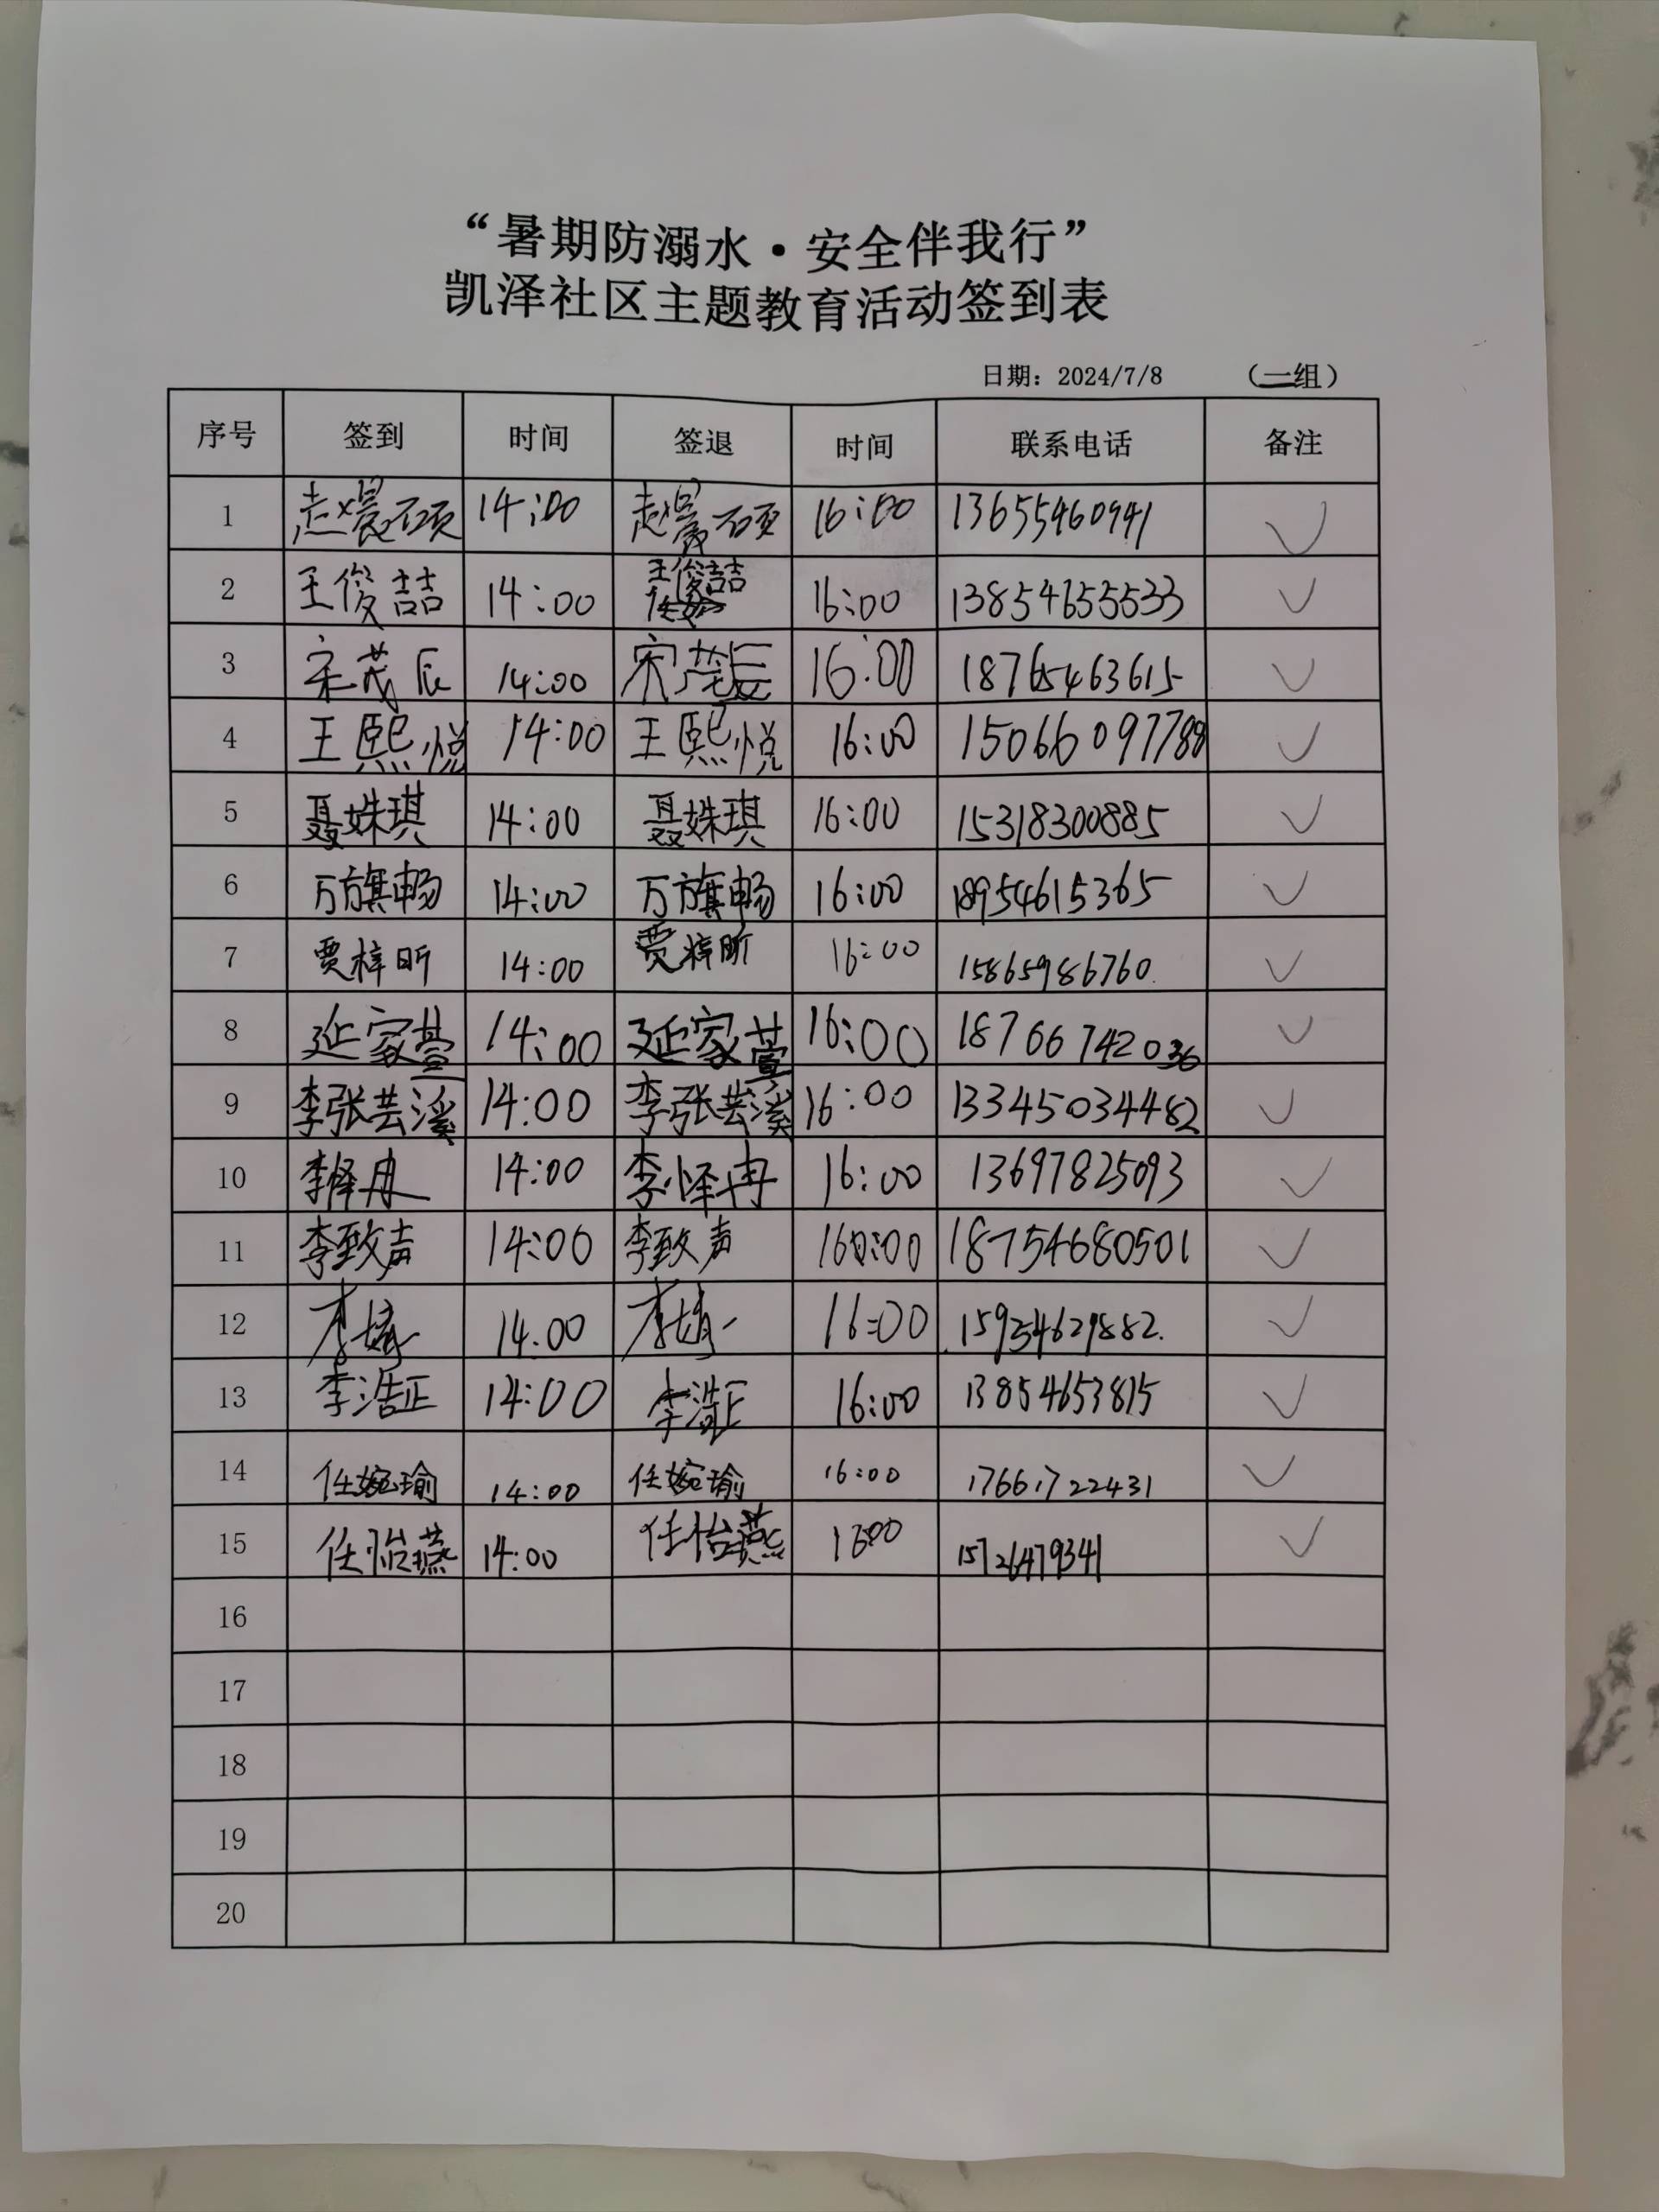 “暑期防溺水·安全伴我行”
凯泽社区主题教育活动签到表
日期：2024/7/8 （一组）
序号 签到 时间 签退 时间 联系电话 备注
1 赵晨硕 14:00 赵晨硕 16:00 13655460941 √
2 王俊喆 14:00 王俊喆 16:00 13854655533 √
3 宋茂辰 14:00 宋茂辰 16:00 18765463615 √
4 王熙悦 14:00 王熙悦 16:00 15066097788 √
5 聂姝琪 14:00 聂姝琪 16:00 15318300885 √
6 万旗畅 14:00 万旗畅 16:00 18954615365 √
7 贾梓昕 14:00 贾梓昕 16:00 15865986760. √
8 延家萱 14:00 延家萱 16:00 18766742036 √
9 李张芸溪 14:00 李张芸溪 16:00 13345034482 √
10 李怿冉 14:00 李怿冉 16:00 13697825093 √
11 李致声 14:00 李致声 16:00 18754680501 √
12 李婧 14:00 李婧 16:00 15954629882. √
13 李浩正 14:00 李浩正 16:00 13854653815 √
14 任婉瑜 14:00 任婉瑜 16:00 17661722431 √
15 任怡燕 14:00 任怡燕 1600 15726479341 √
16
17
18
19
20